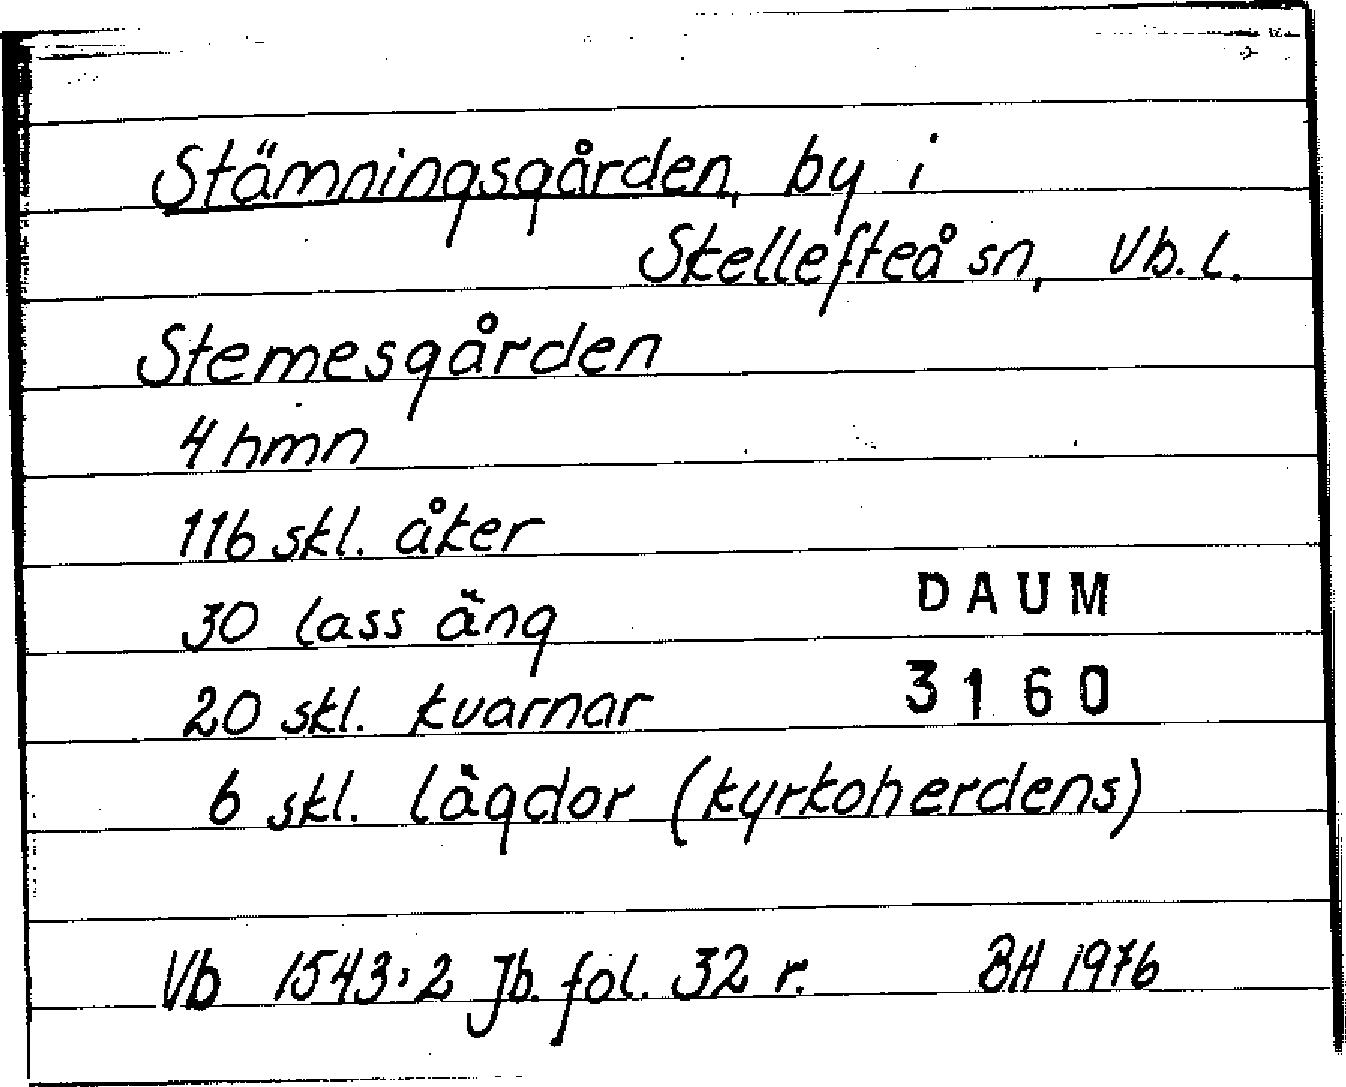 Stämningsgården, by i
Skellefteå sn, Vb. l.
Stemesgården
4 hmn
116 skl. åker
30 lass äng
DAUM
20 skl. kvarnar
3160
6 skl. lägdor (kyrkoherdens)
Vb 1543:2 Jb. fol. 32 r. BH 1976